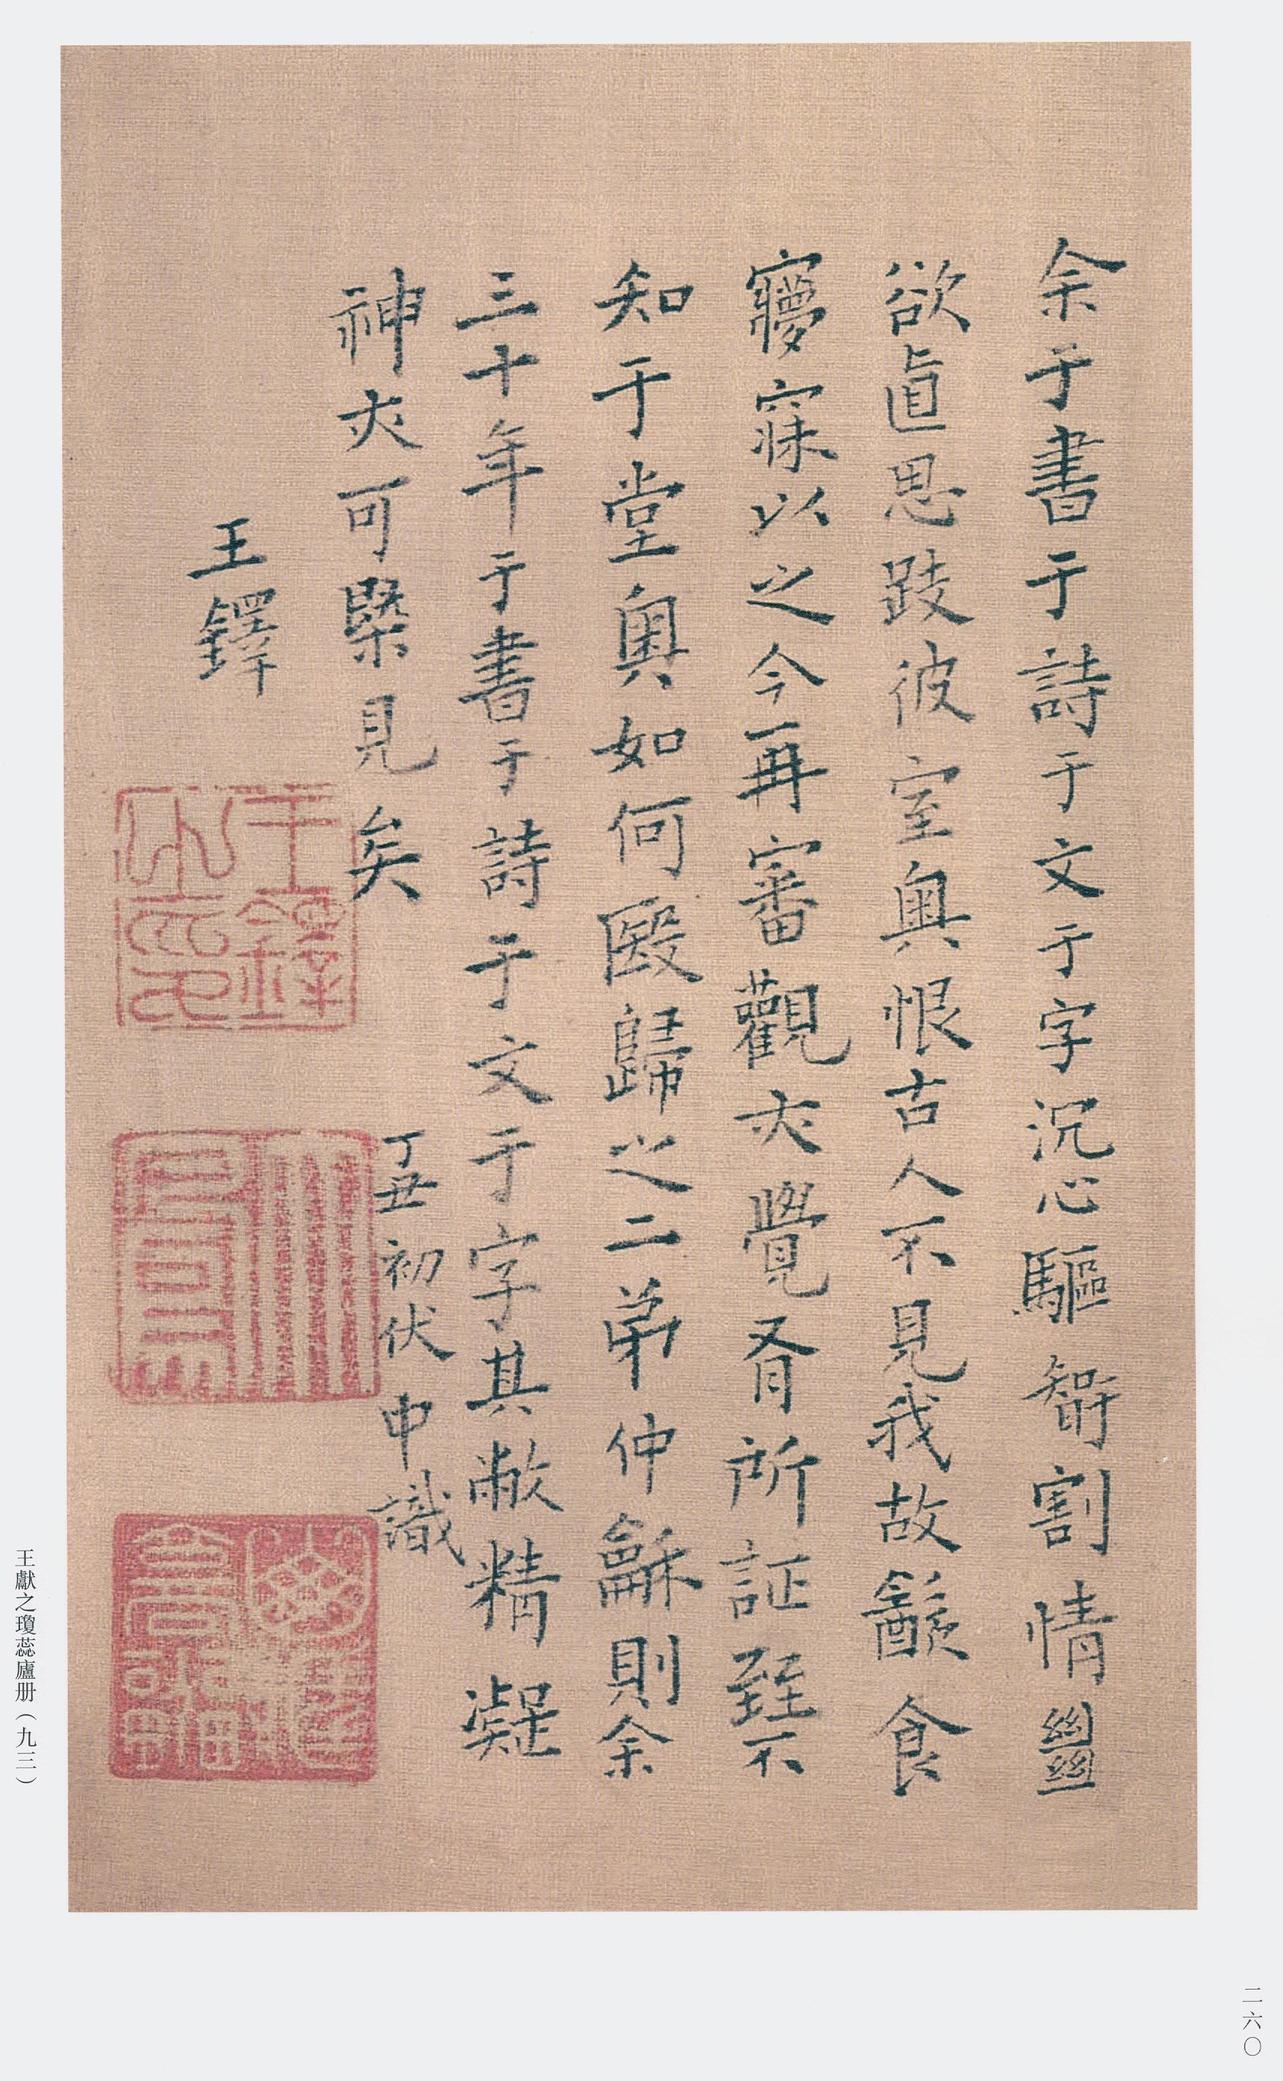 余于書于詩于文于字沉心驅智割情㡭
欲直思跂彼室奧恨古人不見我故飜食
寢寐以之今再審觀亦覺有所証至不
知于堂奧如何殹歸之二弟仲龢則余
三十年于書于詩于文于字其敝精凝
神亦可槩見矣
丁丑初伏中識
王鐸
王鐸之印
王獻之瓊蕊廬册（九三）
二六〇